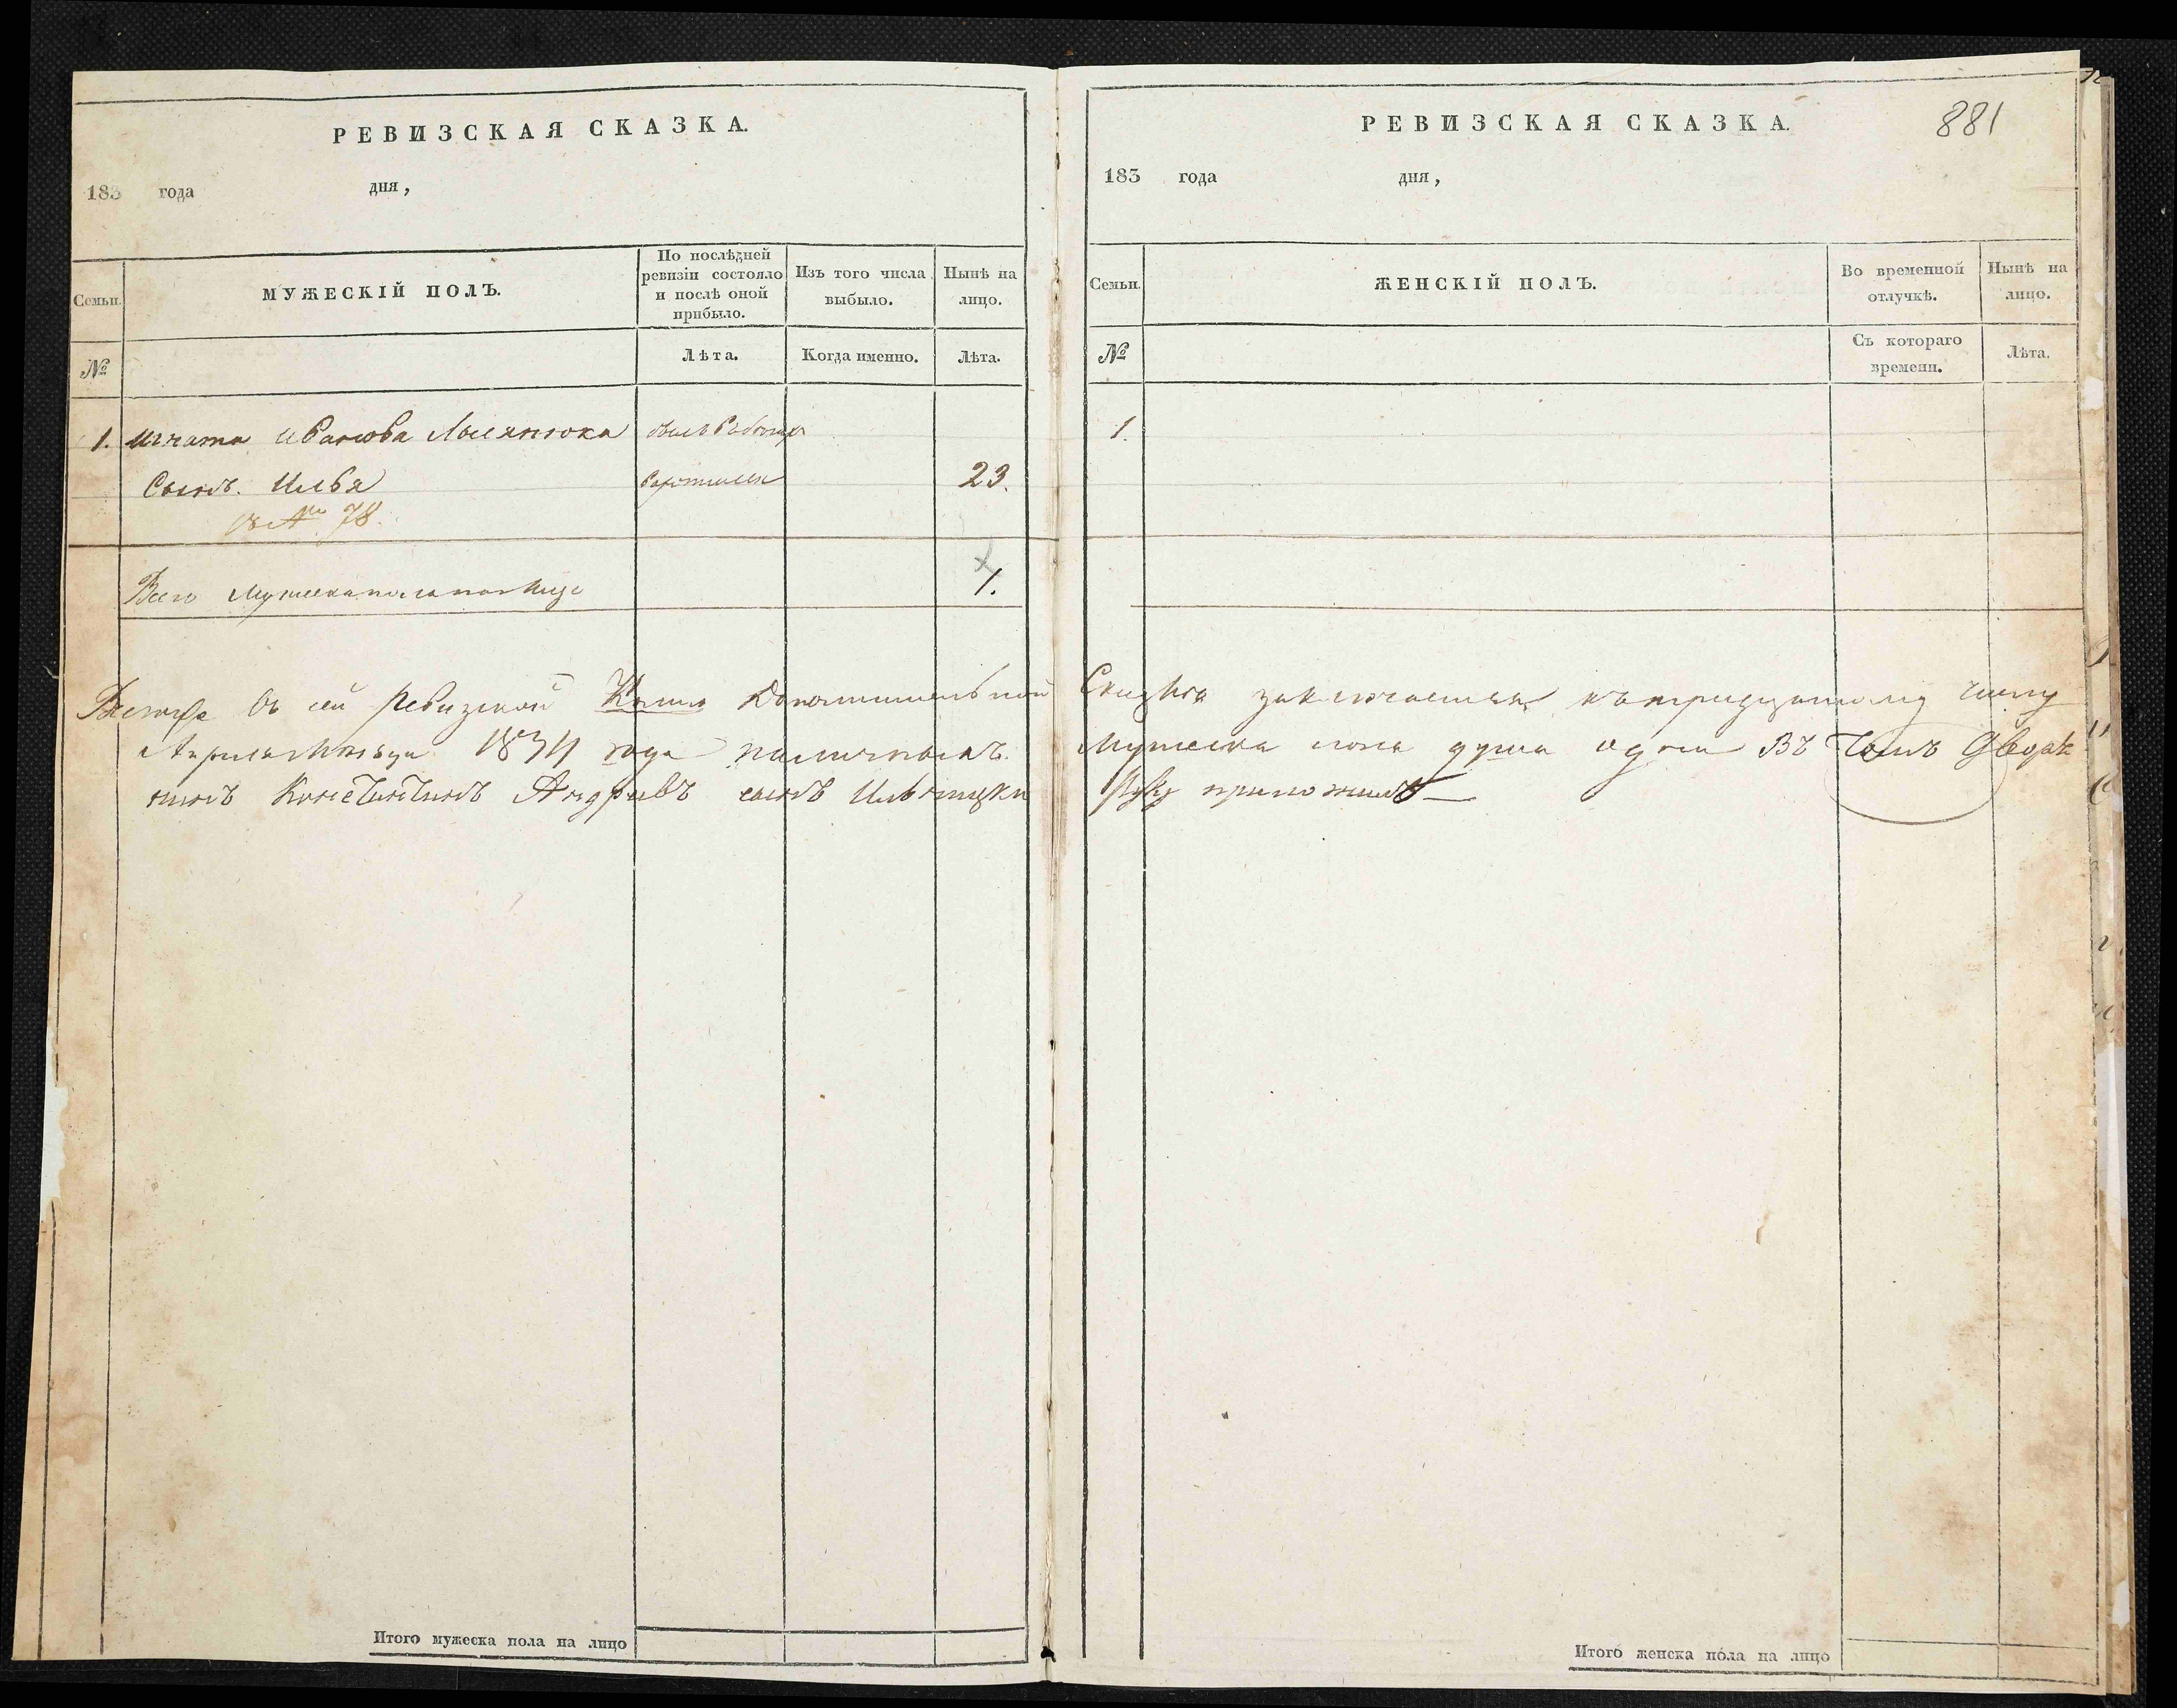 РЕВИЗСКАЯ СКАЗКА.
183 года дня,
Семьи.
МУЖЕСКІЙ ПОЛЪ.
По послѣдней
ревизіи состояло
и послѣ оной
прибыло.
Изъ того числа
выбыло.
Нынѣ на
лицо.
№
Лѣта.
Когда именно.
Лѣта.
1. Игната Иванова
Сынъ. Илья 23.
№ 78.
Всего Мужеска пола на лицо 1.
Итого мужеска пола на лицо
РЕВИЗСКАЯ СКАЗКА.
881
183 года дня,
Семьи.
ЖЕНСКІЙ ПОЛЪ.
Во временной
отлучкѣ.
Нынѣ на
лицо.
№
Съ котораго
времени.
Лѣта.
1.
въ сей Ревизской Дополнительной Скаскѣ заключается къ тридцатому числу
Апреля Мѣсяца 1834 года наличныхъ Мужеска пола душа одна Въ томъ Дворя
нинъ Константинъ Андреевъ сынъ руку приложилъ
Итого женска пола на лицо